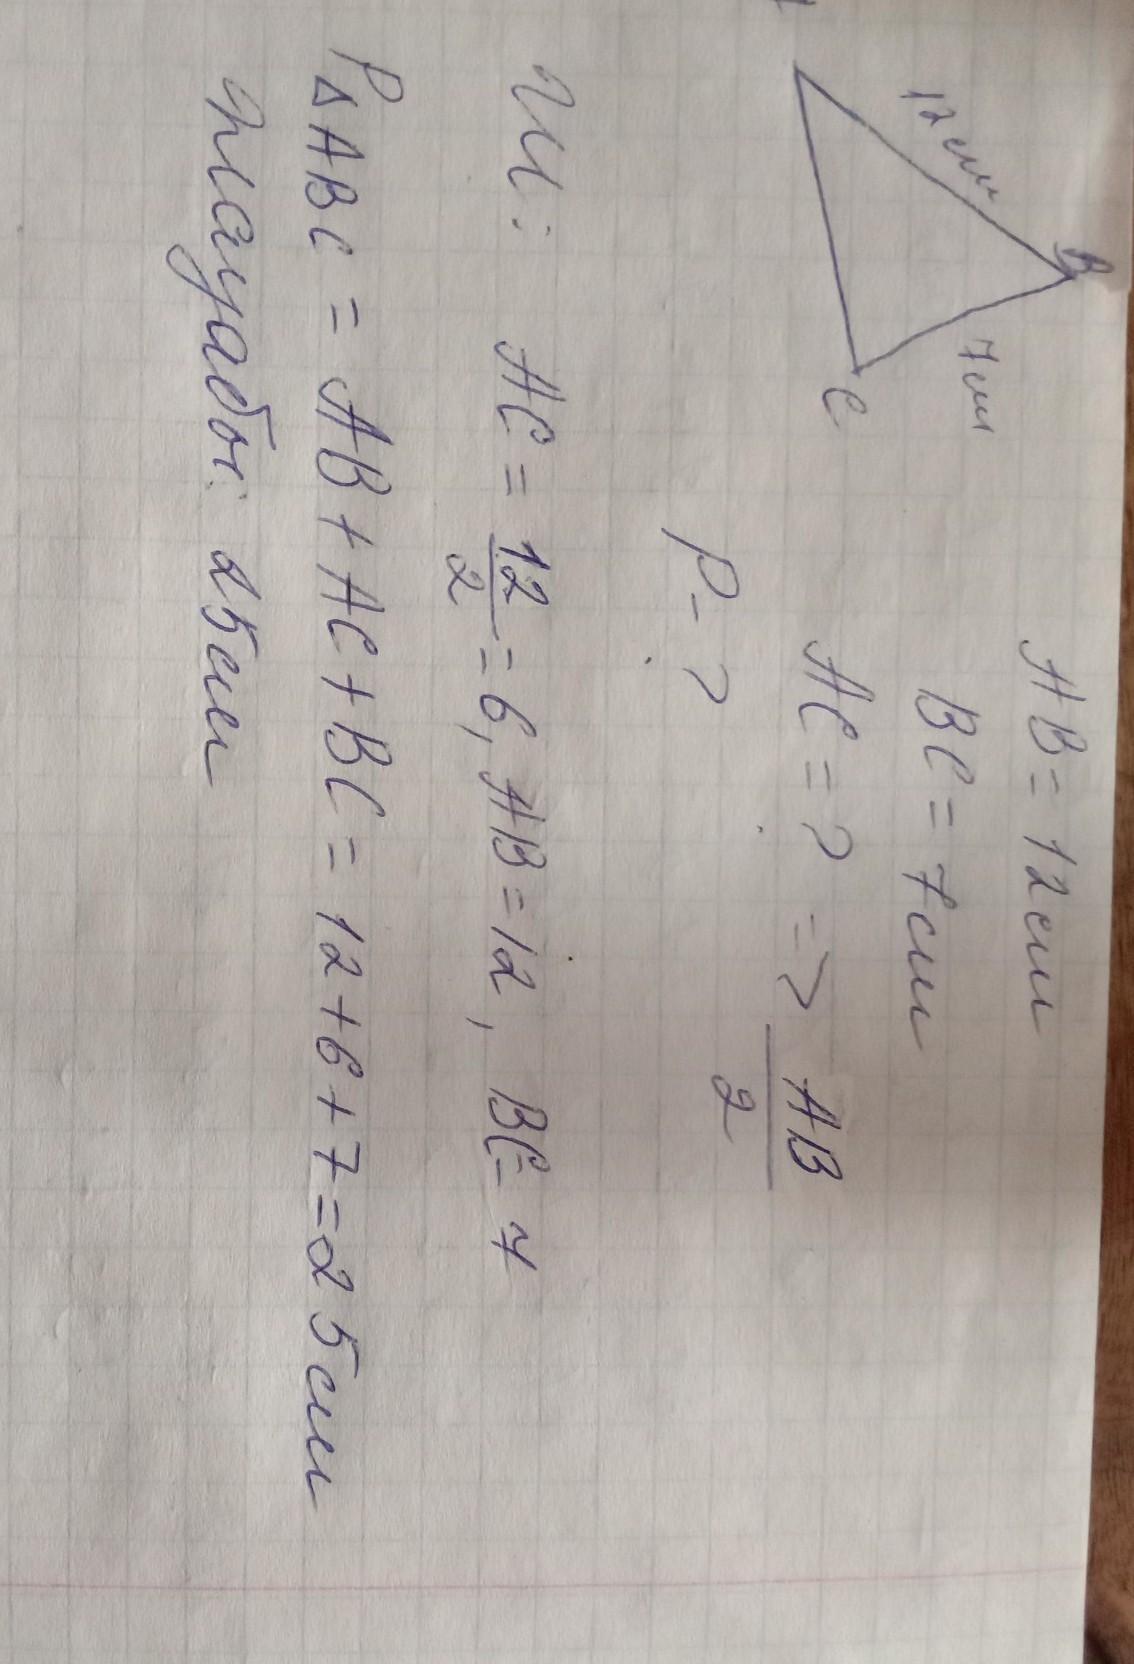 B
12 см
7см
C
AB = 12см
BC = 7см
AC = ? => AB
2
P - ?
AC = 12/2 = 6, AB = 12, BC = 7
P△ABC = AB + AC + BC = 12 + 6 + 7 = 25см
25см